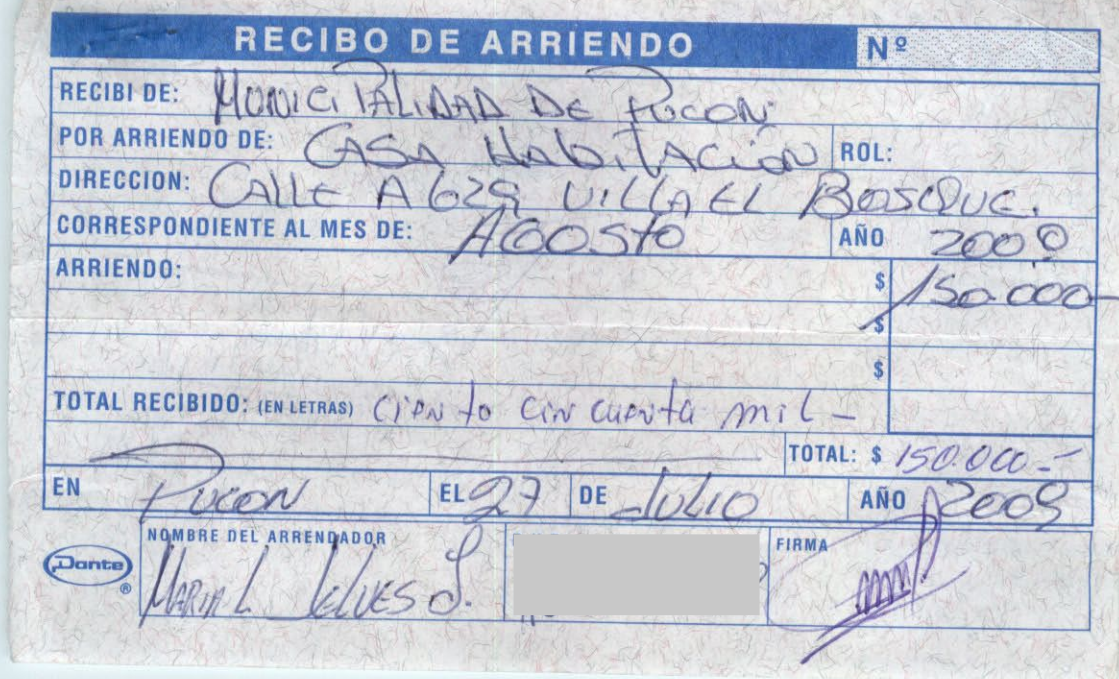 RECIBO DE ARRIENDO Nº
RECIBI DE: MUNICIPALIDAD DE PUCON
POR ARRIENDO DE: CASA HABITACION ROL:
DIRECCION: CALLE A 629 VILLA EL BOSQUE.
CORRESPONDIENTE AL MES DE: AGOSTO AÑO 2009
ARRIENDO: $ 150.000
$
$
TOTAL RECIBIDO: (EN LETRAS) Ciento cincuenta mil -
TOTAL: $ 150.000.-
EN PUCON EL 27 DE JULIO AÑO 2009
NOMBRE DEL ARRENDADOR FIRMA
MARIA L.
Dante ®